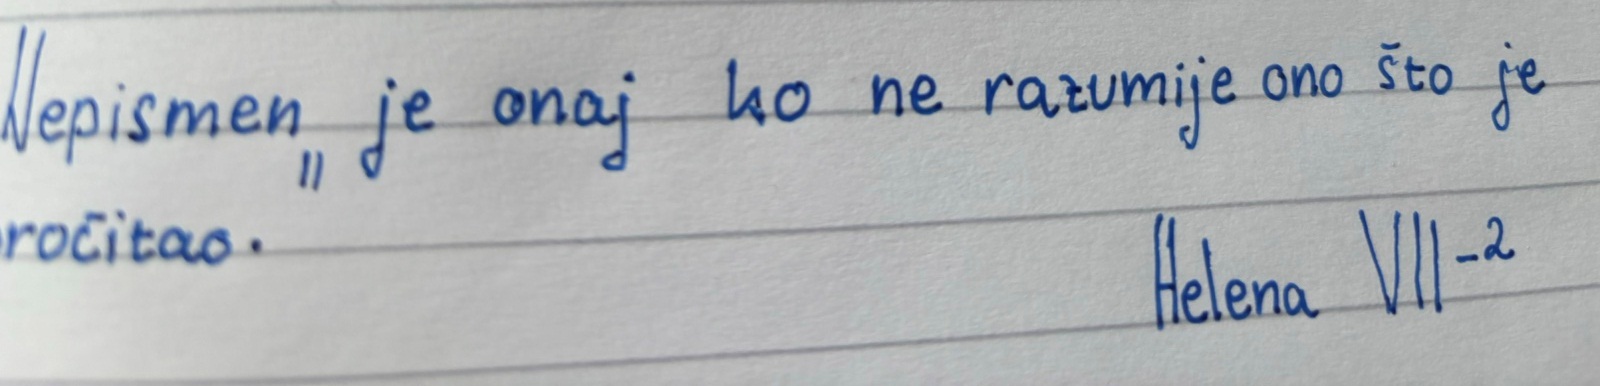 Nepismen„ je onaj ko ne razumije ono što je
ročitao.
Helena VII-2